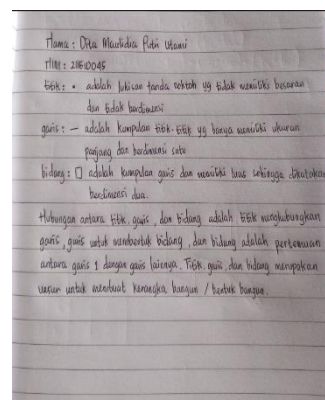 Nama : Dita Maulidia Putri Utami
NIM : 211510045
titik : • adalah lukisan tanda noktah yg tidak memiliki besaran
dan tidak berdimensi
garis : — adalah kumpulan titik-titik yg hanya memiliki ukuran
panjang dan berdimensi satu
bidang : □ adalah kumpulan garis dan memiliki luas sehingga dikatakan
berdimensi dua.
Hubungan antara titik, garis, dan bidang adalah titik menghubungkan
garis, garis untuk membentuk bidang, dan bidang adalah pertemuan
antara garis 1 dengan garis lainnya. Titik, garis, dan bidang merupakan
unsur untuk membuat kerangka bangun / bentuk bangun.